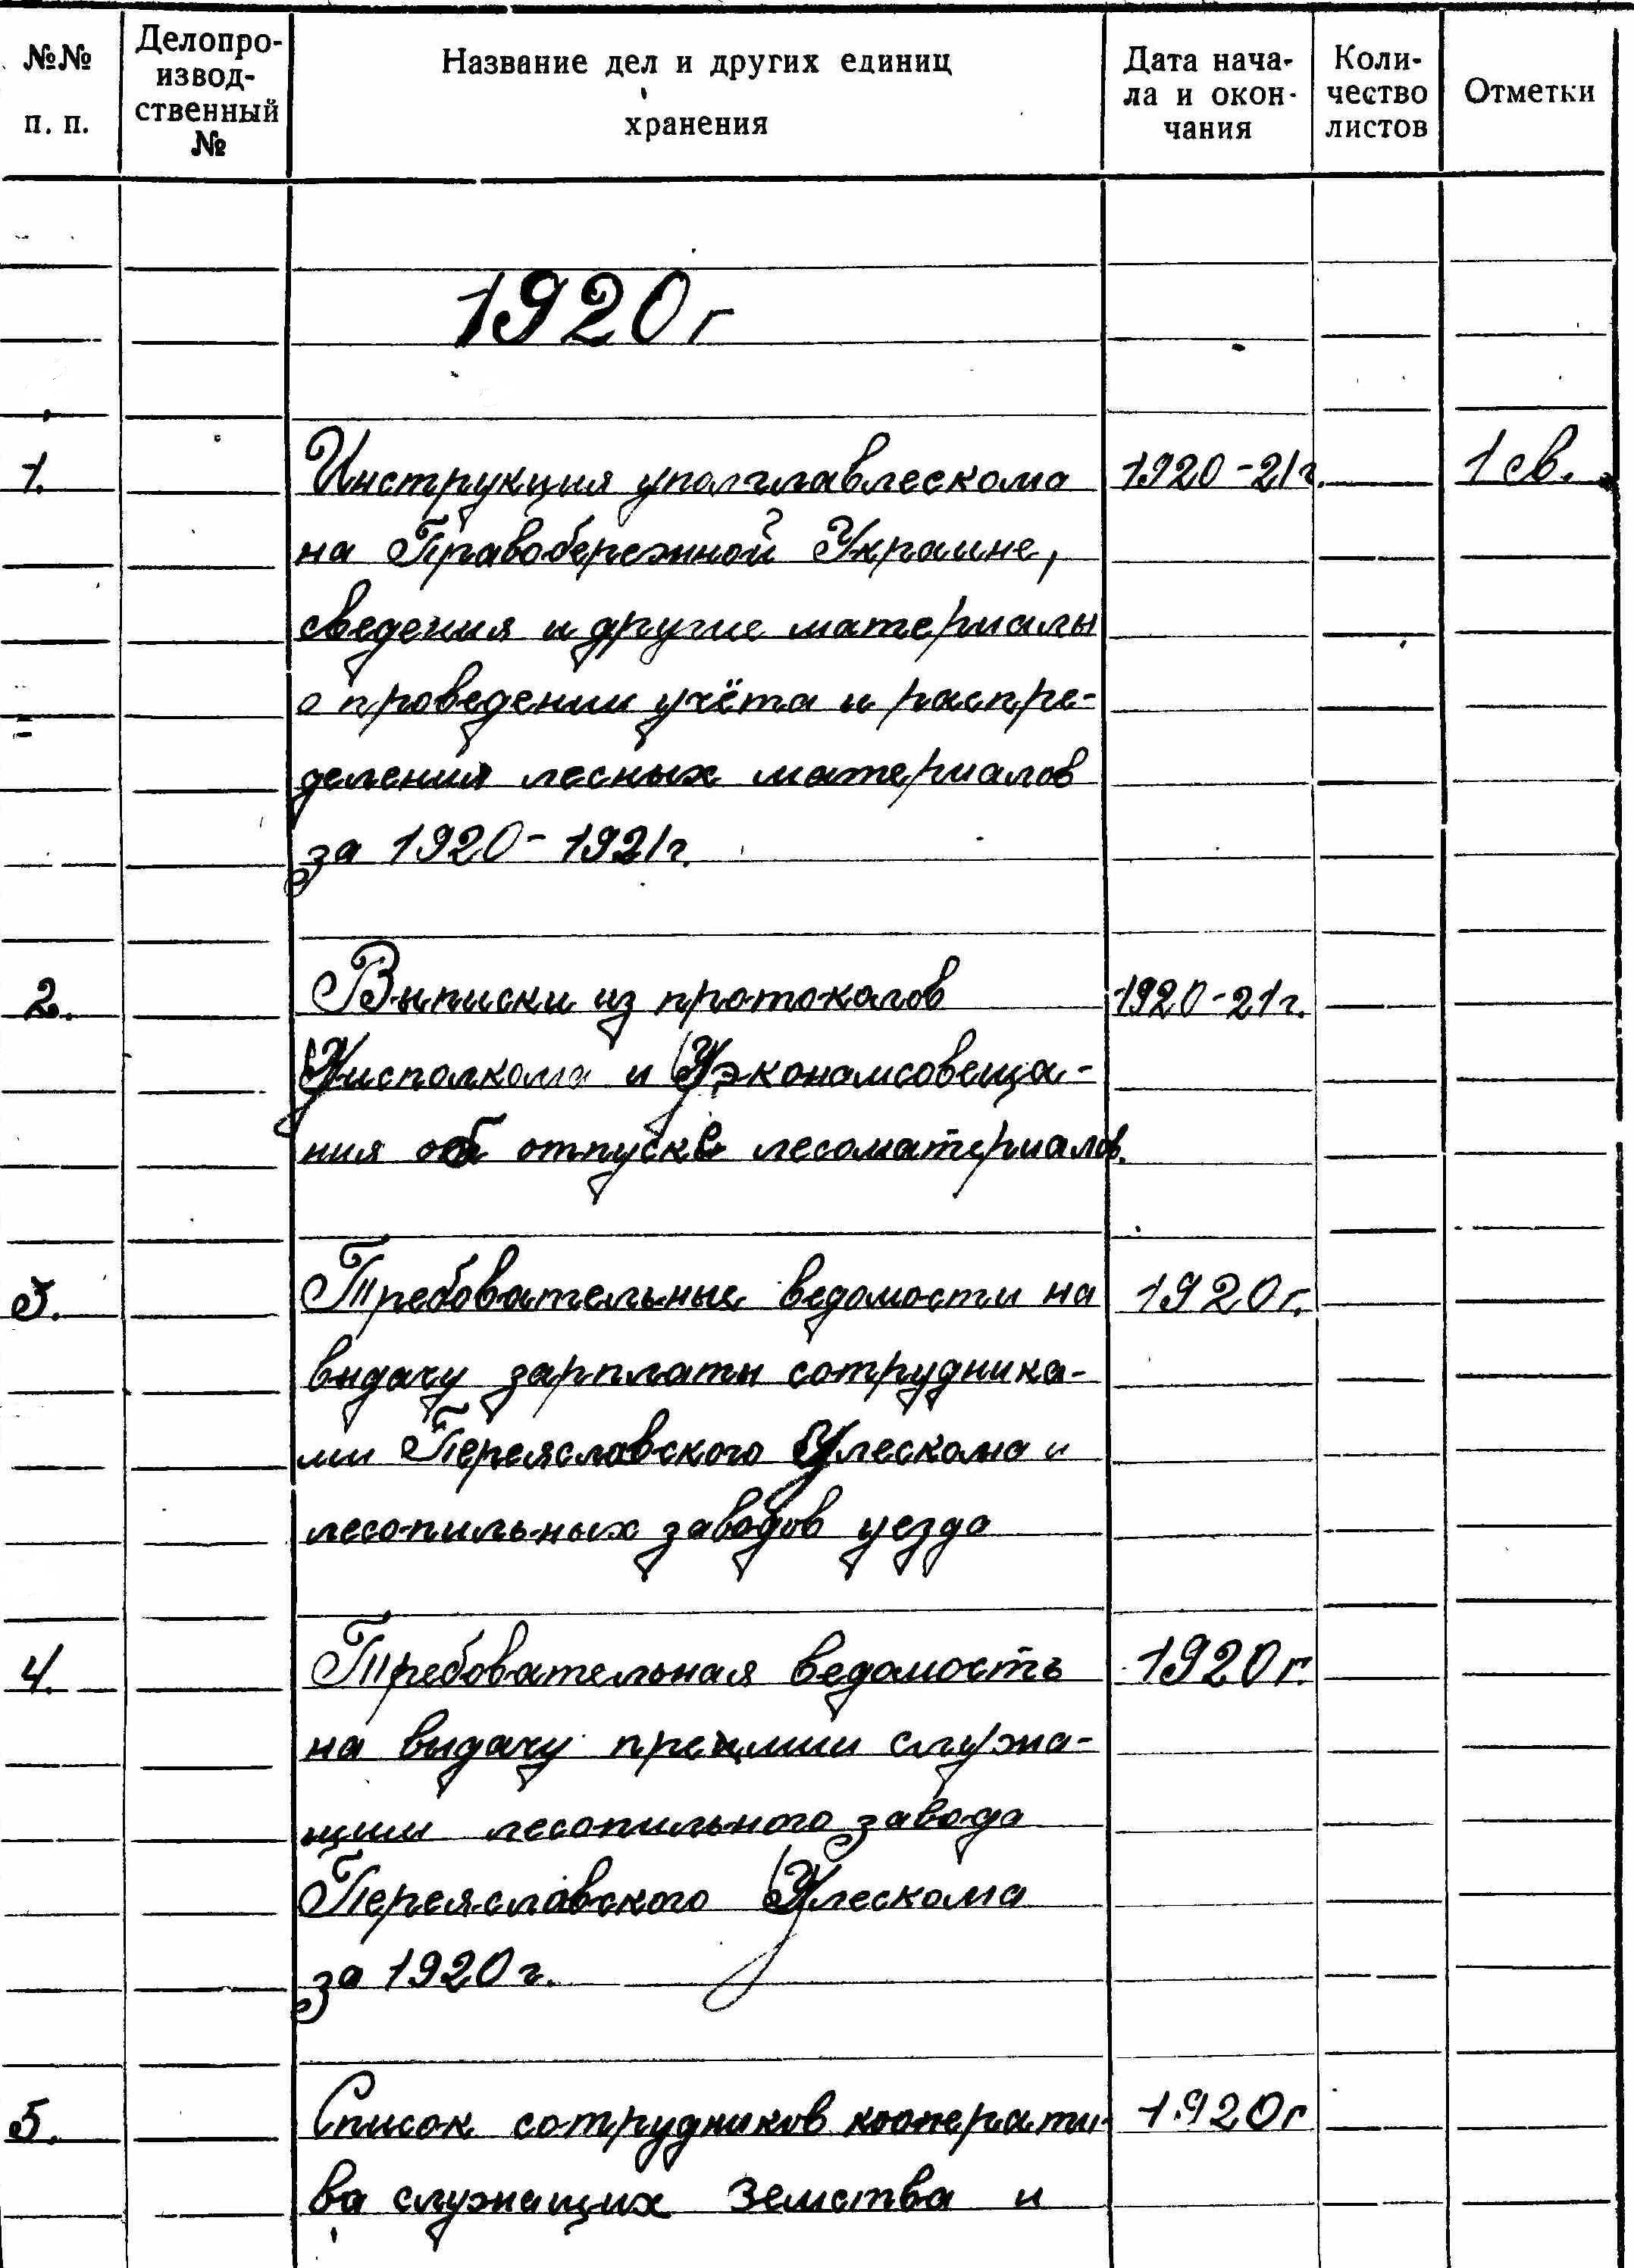 №№ п. п.
Делопро-
извод-
ственный
№
Название дел и других единиц
хранения
Дата нача-
ла и окон-
чания
Коли-
чество
листов
Отметки
1920г
1. Инструкция уполглавлескома 1920-21г. 1 св.
на Правобережной Украине,
сведения и другие материалы
о проведении учёта и распре-
деления лесных материалов
за 1920-1921г.
2. Выписки из протоколов 1920-21г.
Уисполкома и Уэкономсовеща-
ния об отпуске лесоматериалов.
3. Требовательные ведомости на 1920г.
выдачу зарплаты сотрудника-
ми Переяславского Улескома и
лесопильных заводов уезда
4. Требовательная ведомость 1920г.
на выдачу премии служа-
щим лесопильного завода
Переяславского Улескома
за 1920г.
5. Список сотрудников кооперати- 1920г
ва служащих Земства и